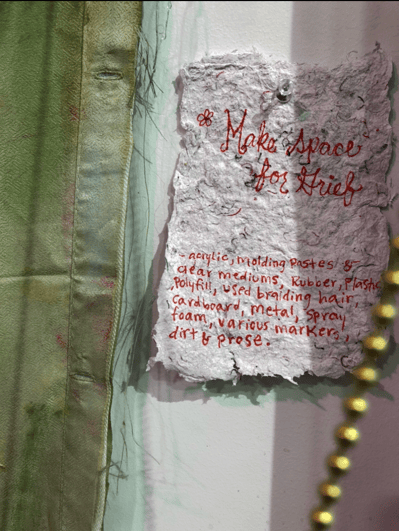 Make Space
for Grief
- acrylic, molding pastes &
clear mediums, Rubber, Plastic
Polyfill, used braiding hair
cardboard, metal, spray
foam, various markers,
dirt & prose.